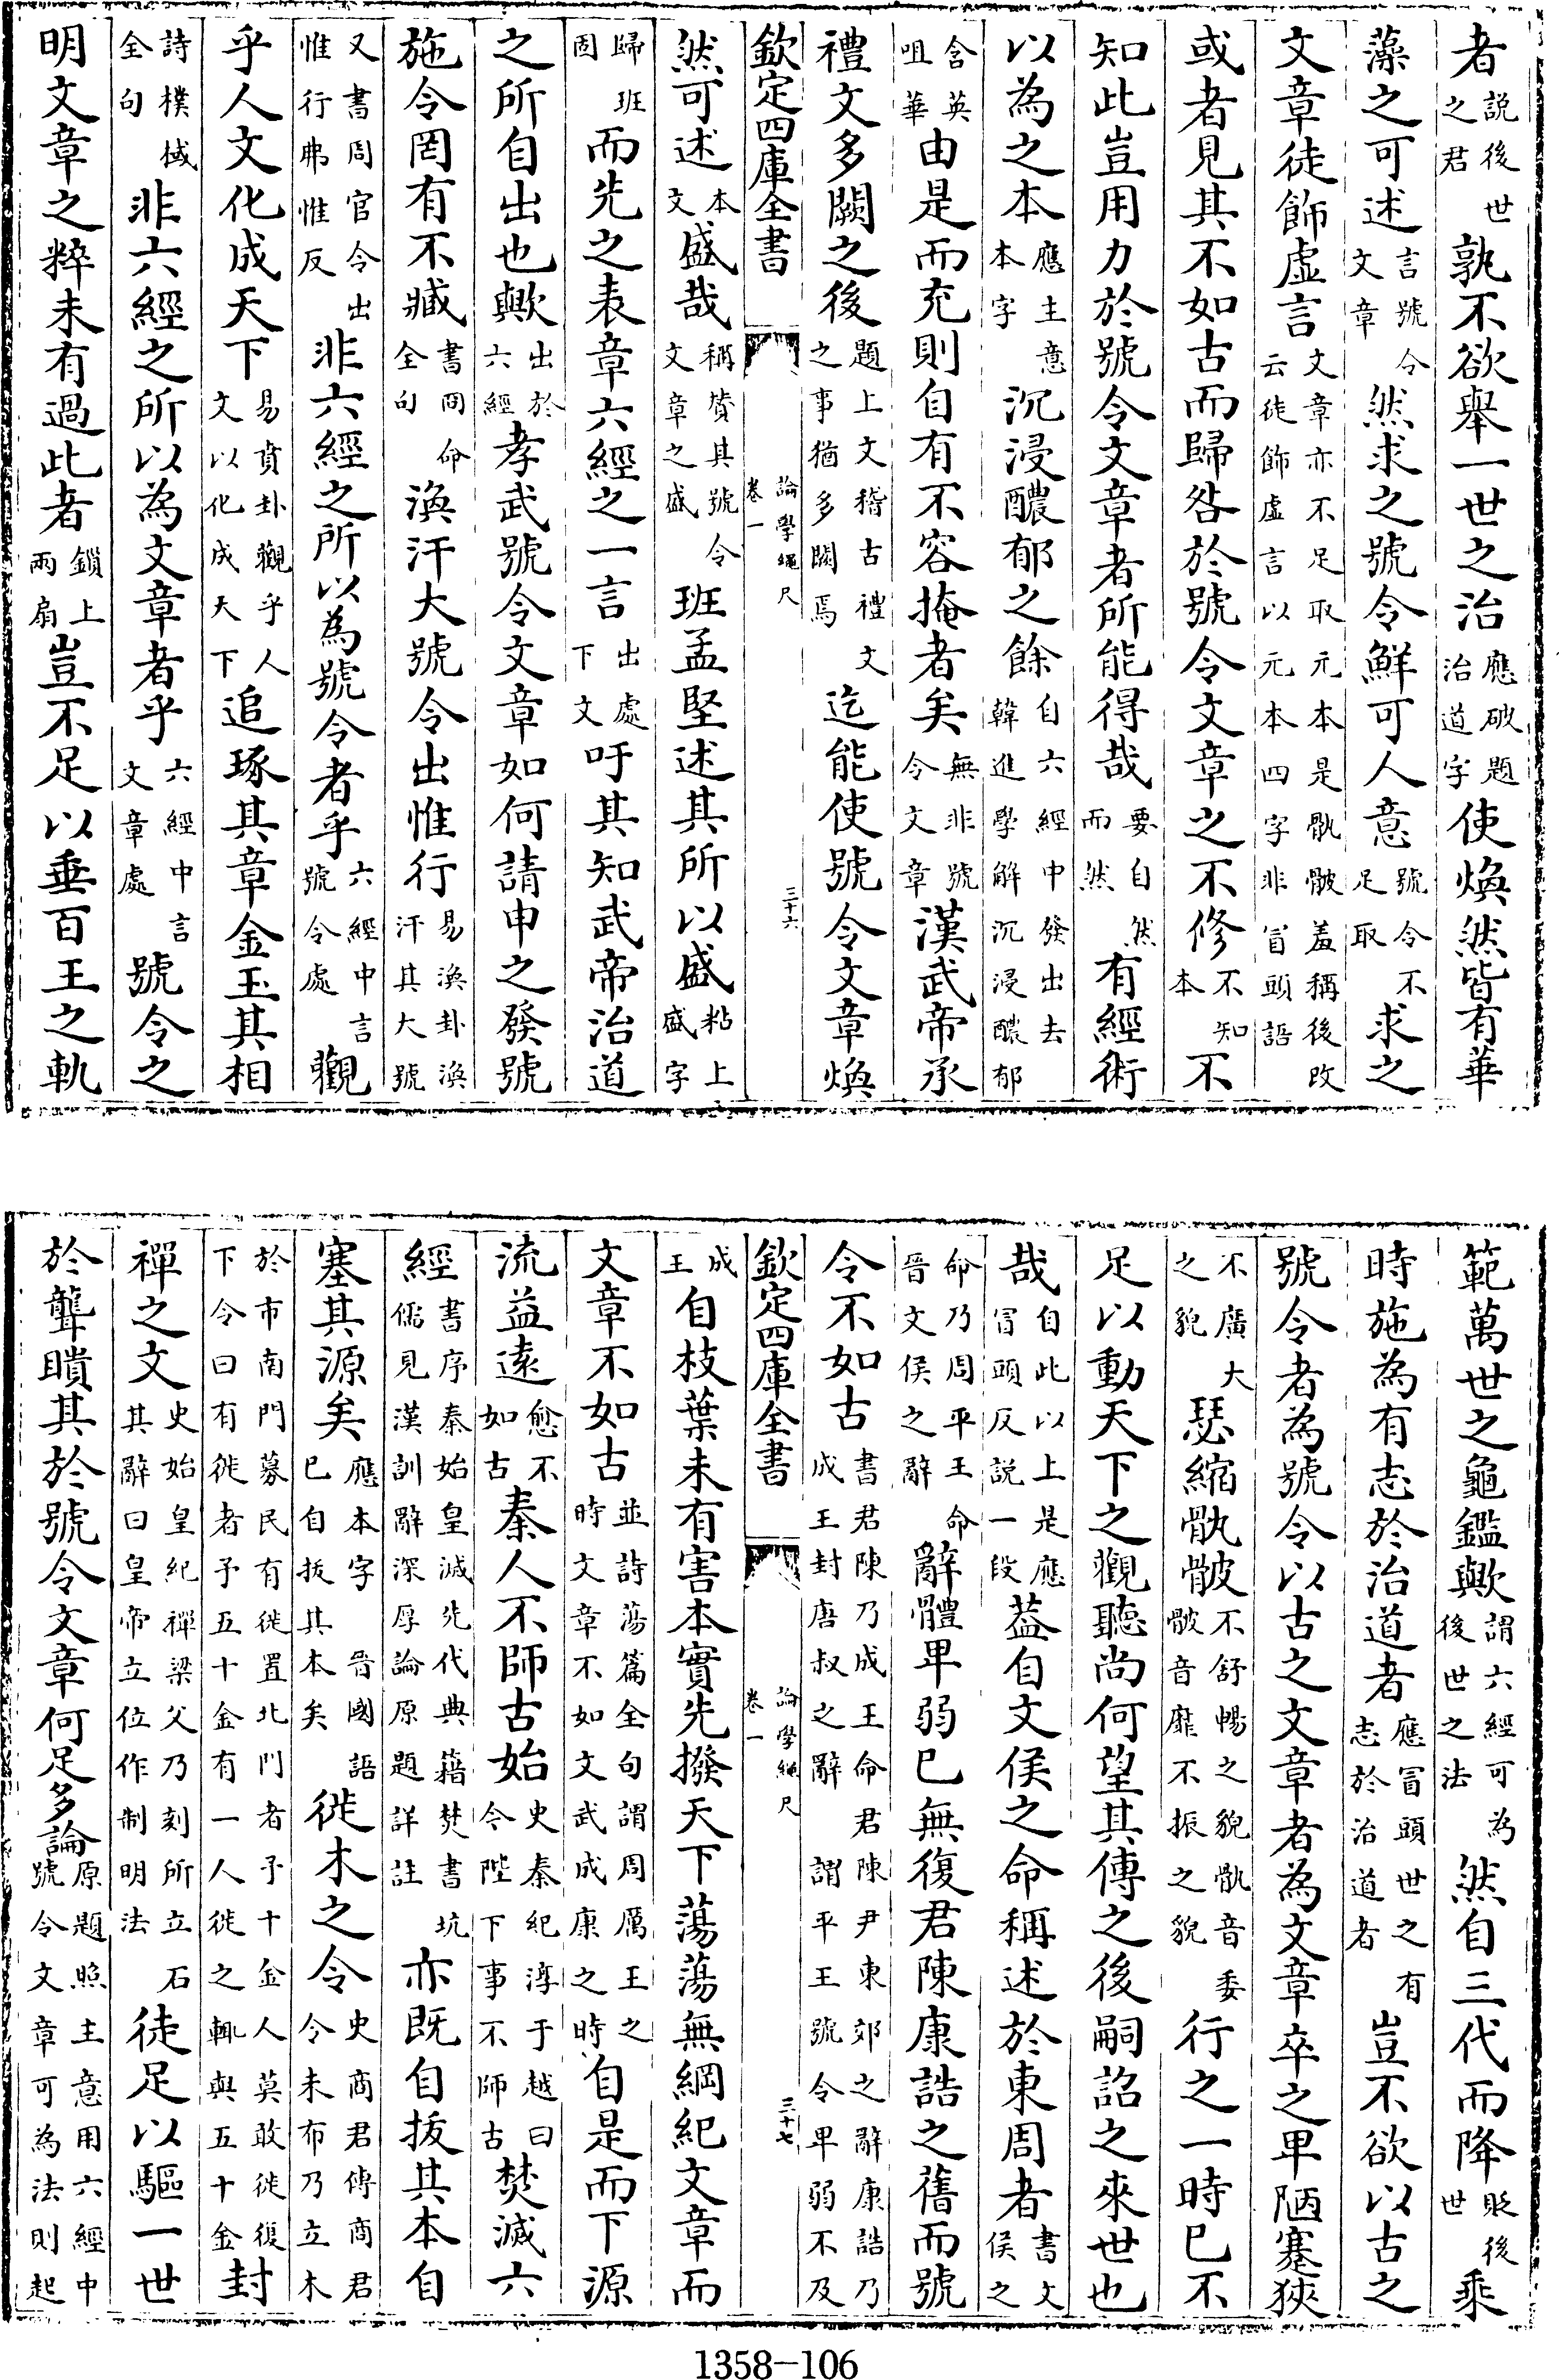 者說後世之君孰不欲舉一世之治應破題治道字使煥然皆有華
藻之可述言號令文章然求之號令鮮可人意號令不足取求之
文章徒飾虛言文章亦不足取元本是骫骳羞稱後改云徒飾虛言以元本四字非冒頭語
或者見其不如古而歸咎於號令文章之不修不知本不
知此豈用力於號令文章者所能得哉要自然而然有經術
以為之本應主意本字沉浸醲郁之餘自六經中發出去韓進學解沉浸醲郁
含英咀華由是而充則自有不容掩者矣無非號令文章漢武帝承
禮文多闕之後題上文稽古禮文之事猶多闕焉迄能使號令文章煥
欽定四庫全書
論學繩尺
卷一
三十六
然可述本文盛哉稱贊其號令文章之盛班孟堅述其所以盛粘上盛字
歸班固而先之表章六經之一言出處下文吁其知武帝治道
之所自出也歟出於六經孝武號令文章如何請申之發號
施令罔有不臧書冏命全句渙汗大號令出惟行易渙卦渙汗其大號
又書周官令出惟行弗惟反非六經之所以為號令者乎六經中言號令處觀
乎人文化成天下易賁卦觀乎人文以化成天下追琢其章金玉其相
詩樸棫全句非六經之所以為文章者乎六經中言文章處號令之
明文章之粹未有過此者鎖上兩扇豈不足以垂百王之軌
範萬世之龜鑑歟謂六經可為後世之法然自三代而降貶後世乘
時施為有志於治道者應冒頭世之有志於治道者豈不欲以古之
號令者為號令以古之文章者為文章卒之卑陋蹇狹
不廣大之貌瑟縮骫骳不舒暢之貌骫音委骳音靡不振之貌行之一時已不
足以動天下之觀聽尚何望其傳之後嗣詔之來世也
哉自此以上是應冒頭反說一段葢自文侯之命稱述於東周者書文侯之
命乃周平王命晉文侯之辭辭體卑弱已無復君陳康誥之舊而號
令不如古書君陳乃成王命君陳尹東郊之辭康誥乃成王封唐叔之辭謂平王號令卑弱不及
欽定四庫全書
論學繩尺
卷一
三十七
成王自枝葉未有害本實先撥天下蕩蕩無綱紀文章而
文章不如古並詩蕩篇全句謂周厲王之時文章不如文武成康之時自是而下源
流益遠愈不如古秦人不師古始史秦紀淳于越曰今陛下事不師古焚滅六
經書序秦始皇滅先代典籍焚書坑儒見漢訓辭深厚論原題詳註亦既自拔其本自
塞其源矣應本字已自拔其本矣晉國語徙木之令史商君傳商君令未布乃立木
於市南門募民有徙置北門者予十金人莫敢徙復下令曰有徙者予五十金有一人徙之輒與五十金封
禪之文史始皇紀禪梁父乃刻所立石其辭曰皇帝立位作制明法徒足以驅一世
於聾瞶其於號令文章何足多論原題照主意用六經中號令文章可為法則起
1358-106